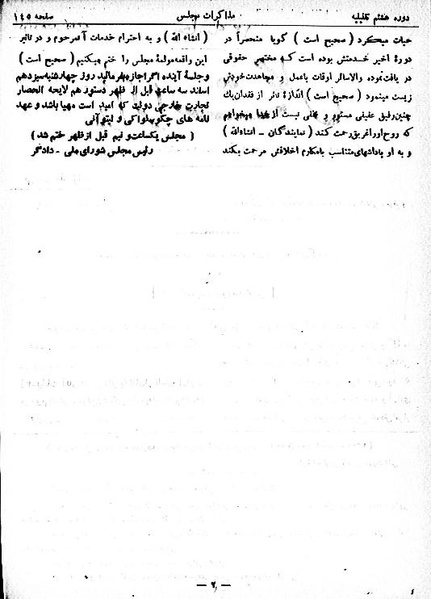 دوره هفتم تقنینیه
مذاکرات مجلس
صفحه ۱۴۵
حیات میکرد ( صحیح است ) گویا منحصراً در
دورهٔ اخیر خدمتش بوده است که مختصر حقوقی
دریافت بوده والا سالر اوقات باعمل و مجاهدت خودش
زیست مینمود ( صحیح است ) اندازهٔ تاثر از فقدان یك
چنین رفیق عفیفی مستور و مخفی نیست از خدا میخواهم
که روح اورا غریق رحمت کند ( نمایندگان - انشاءالله )
و به او پاداشهای متناسب بامکارم اخلاقش مرحمت بکند
( انشاء الله ) و به احترام خدمات آنمرحوم و در تاثیر
این واقعه مولمهٔ مجلس را ختم میکنیم ( صحیح است )
وجلسهٔ آینده اگر اجازه بفرمائید روز چهارشنبه سیزدهم
اسفند سه ساعت قبل از ظهر دستور هم لایحه انحصار
تجارت خارجی دولت که امید است مهیا باشد و عهد
نامه های چکوسلواکی و لیتوانی
( مجلس یکساعت و نیم قبل از ظهر ختم شد )
رئیس مجلس شورای ملی - دادگر
— ۲ —